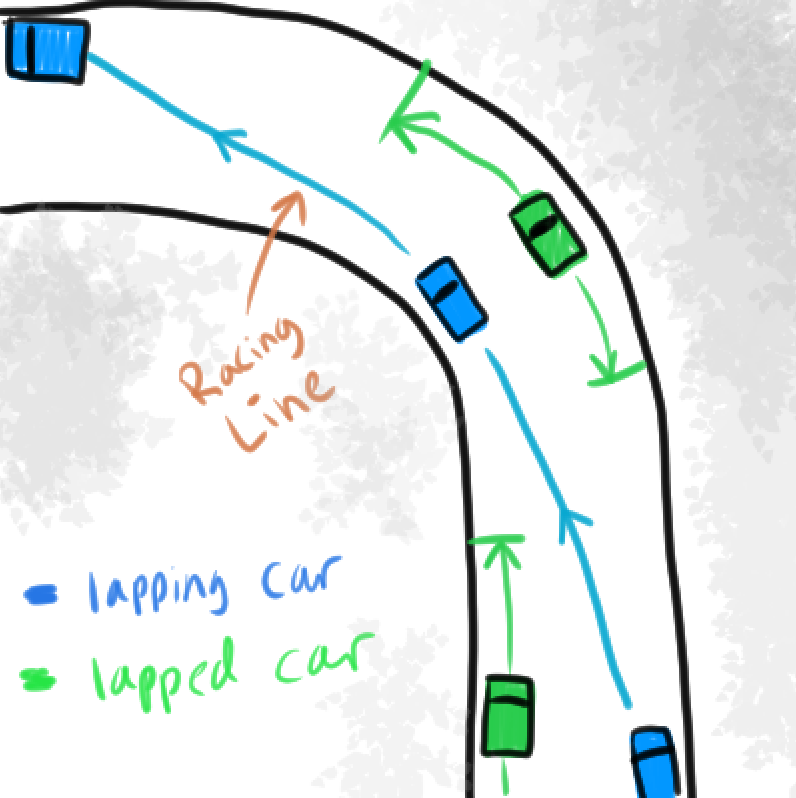 Racing
Line
lapping car
lapped car